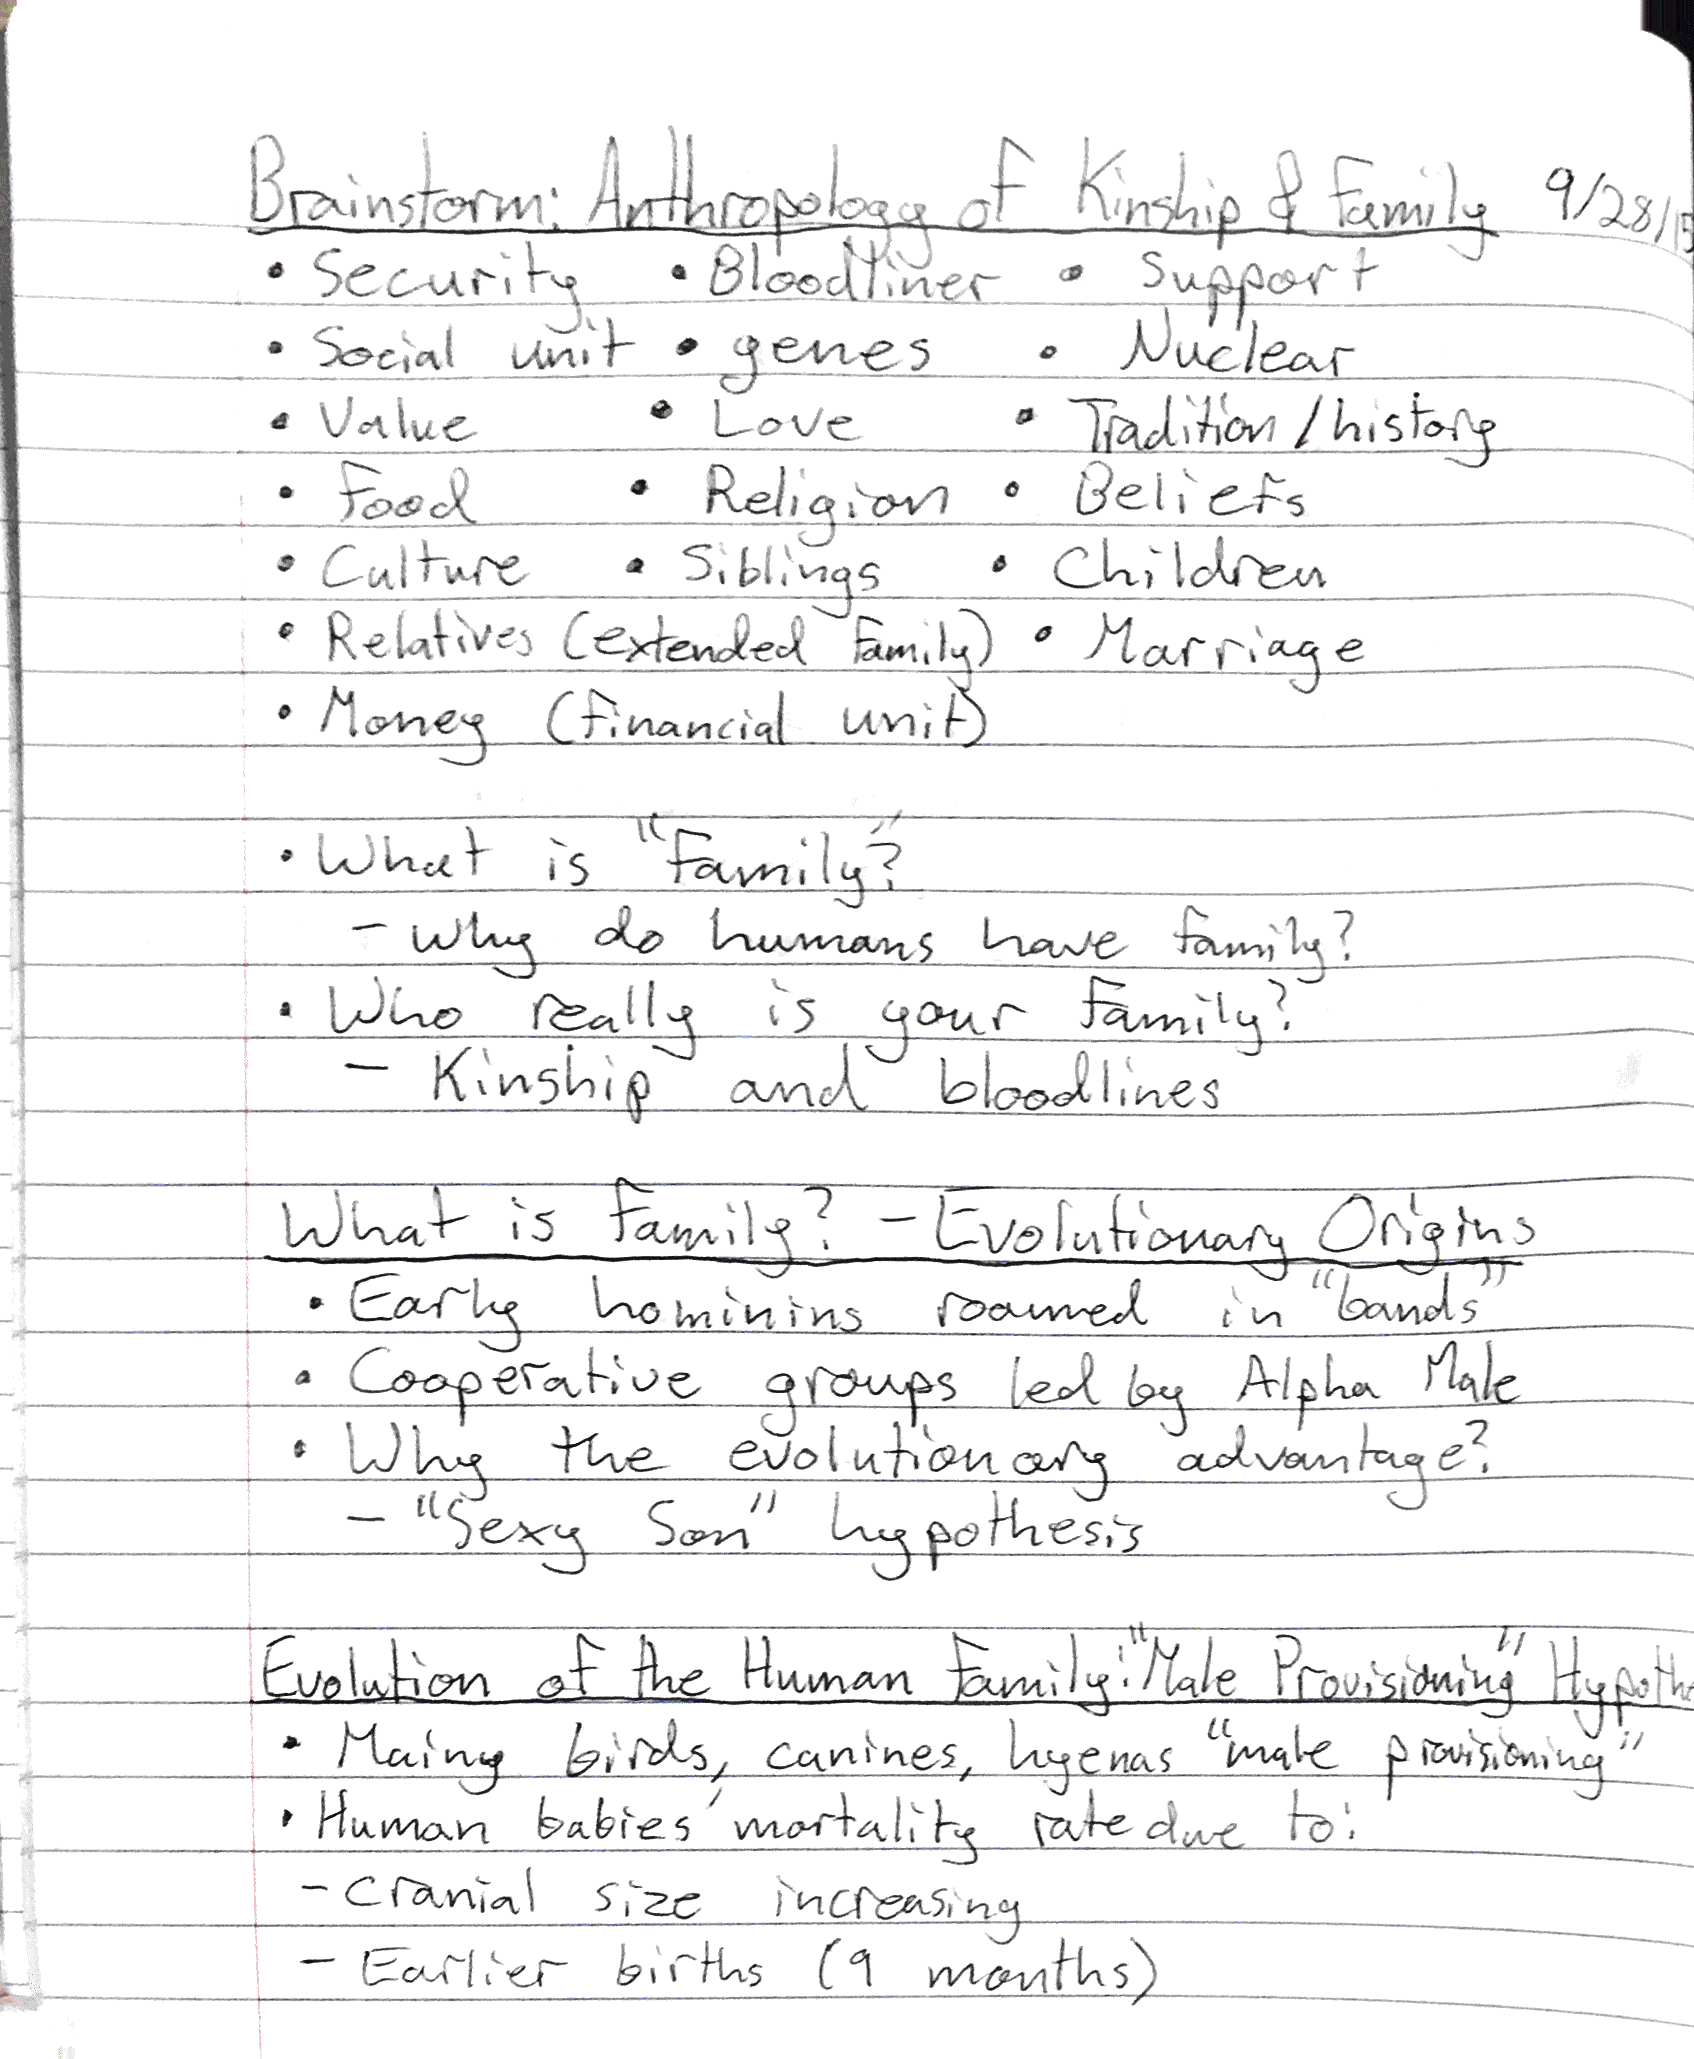 Brainstorm: Anthropology of Kinship & Family 9/28/15
• Security • Bloodliner • Support
• Social unit • genes • Nuclear
• Value • Love • Tradition/history
• Food • Religion • Beliefs
• Culture • Siblings • Children
• Relatives (extended family) • Marriage
• Money (financial unit)
• What is "family"?
- Why do humans have family?
• Who really is your family?
- Kinship and bloodlines
What is Family? - Evolutionary Origins
• Early hominins roamed in "bands"
• Cooperative groups led by Alpha Male
• Why the evolutionary advantage?
- "Sexy Son" hypothesis
Evolution of the Human Family: "Male Provisioning" Hypothe
• Mainy birds, canines, hyenas "male provisioning"
• Human babies' mortality rate due to:
- Cranial size increasing
- Earlier births (9 months)